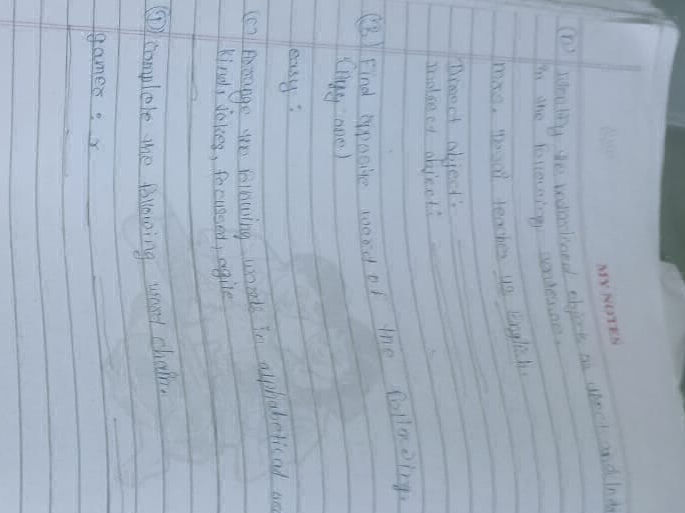 MY NOTES
(1) Identify the underlined objects as direct and Indi
in the following sentences.
Mrs. Desai teaches us English.
Direct object:
Indirect object:
(B) Find opposite word of the following.
(Any one)
easy:
(C) Arrange the following words in alphabetical
kind, jokes, focussed, agile
(D) Complete the following word chain.
games: s